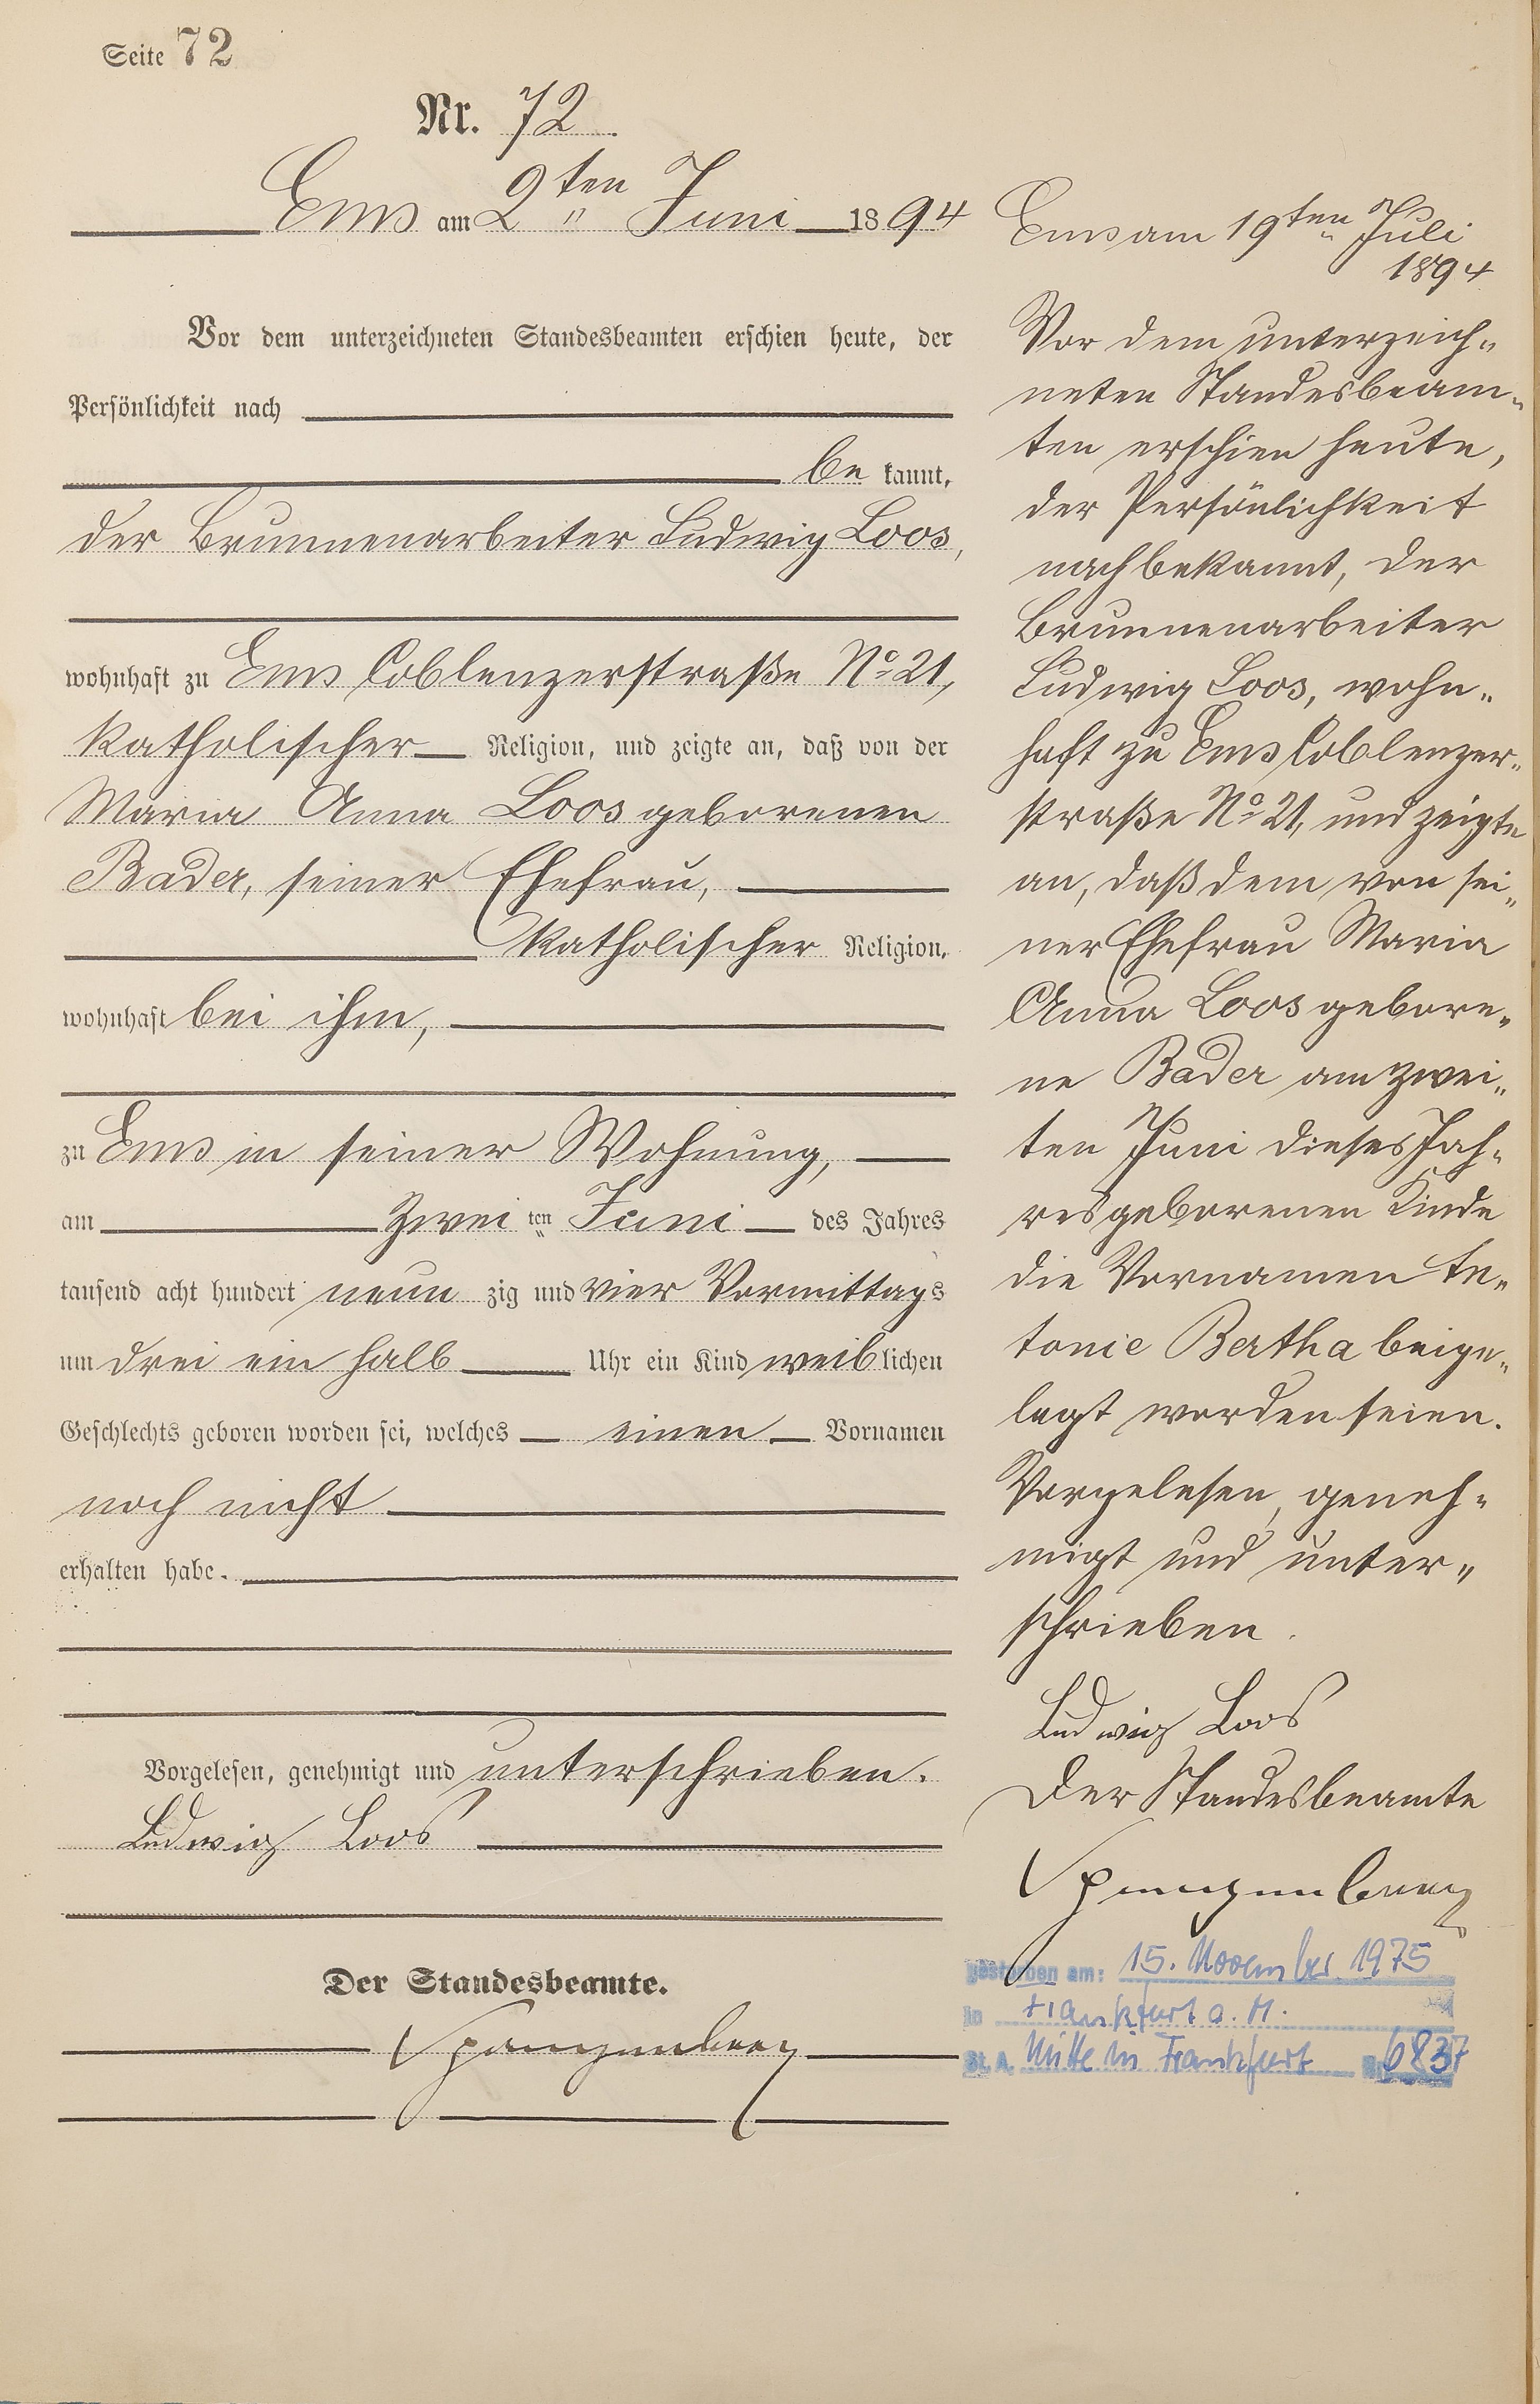 Seite 72
Nr. 72.
Ems am 2ten Juni 1894
Vor dem unterzeichneten Standesbeamten erschien heute, der
Persönlichkeit nach
be kannt,
der Brunnenarbeiter Ludwig Loos,
wohnhaft zu Ems Coblenzerstraße No 21,
katholischer Religion, und zeigte an, daß von der
Maria Anna Loos geborenen
Bader, seiner Ehefrau,
katholischer Religion,
wohnhaft bei ihm,
zu Ems in seiner Wohnung,
am zwei ten Juni des Jahres
tausend acht hundert neun zig und vier Vormittags
um drei ein halb Uhr ein Kind weib lichen
Geschlechts geboren worden sei, welches einen Vornamen
noch nicht
erhalten habe.
Vorgelesen, genehmigt und unterschrieben.
Ludwig Loos
Der Standesbeamte.
Spangenberg
Ems am 19ten Juli
1894
Vor dem unterzeich-
neten Standesbeam-
ten erschien heute,
der Persönlichkeit
nach bekannt, der
Brunnenarbeiter
Ludwig Loos, wohn-
haft zu Ems Coblenzer-
straße No 21, und zeigte
an, daß dem von sei-
ner Ehefrau Maria
Anna Loos gebore-
ne Bader am zwei-
ten Juni dieses Jah-
res geborenen Kinde
die Vornamen
tonie Bertha beige-
legt worden seien.
Vorgelesen, geneh-
migt und unter-
schrieben.
Ludwig Loos
Der Standesbeamte
Spangenberg
gestorben am: 15. November 1975
in Frankfurt a. M.
St. A. Mitte in Frankfurt Nr. 6837